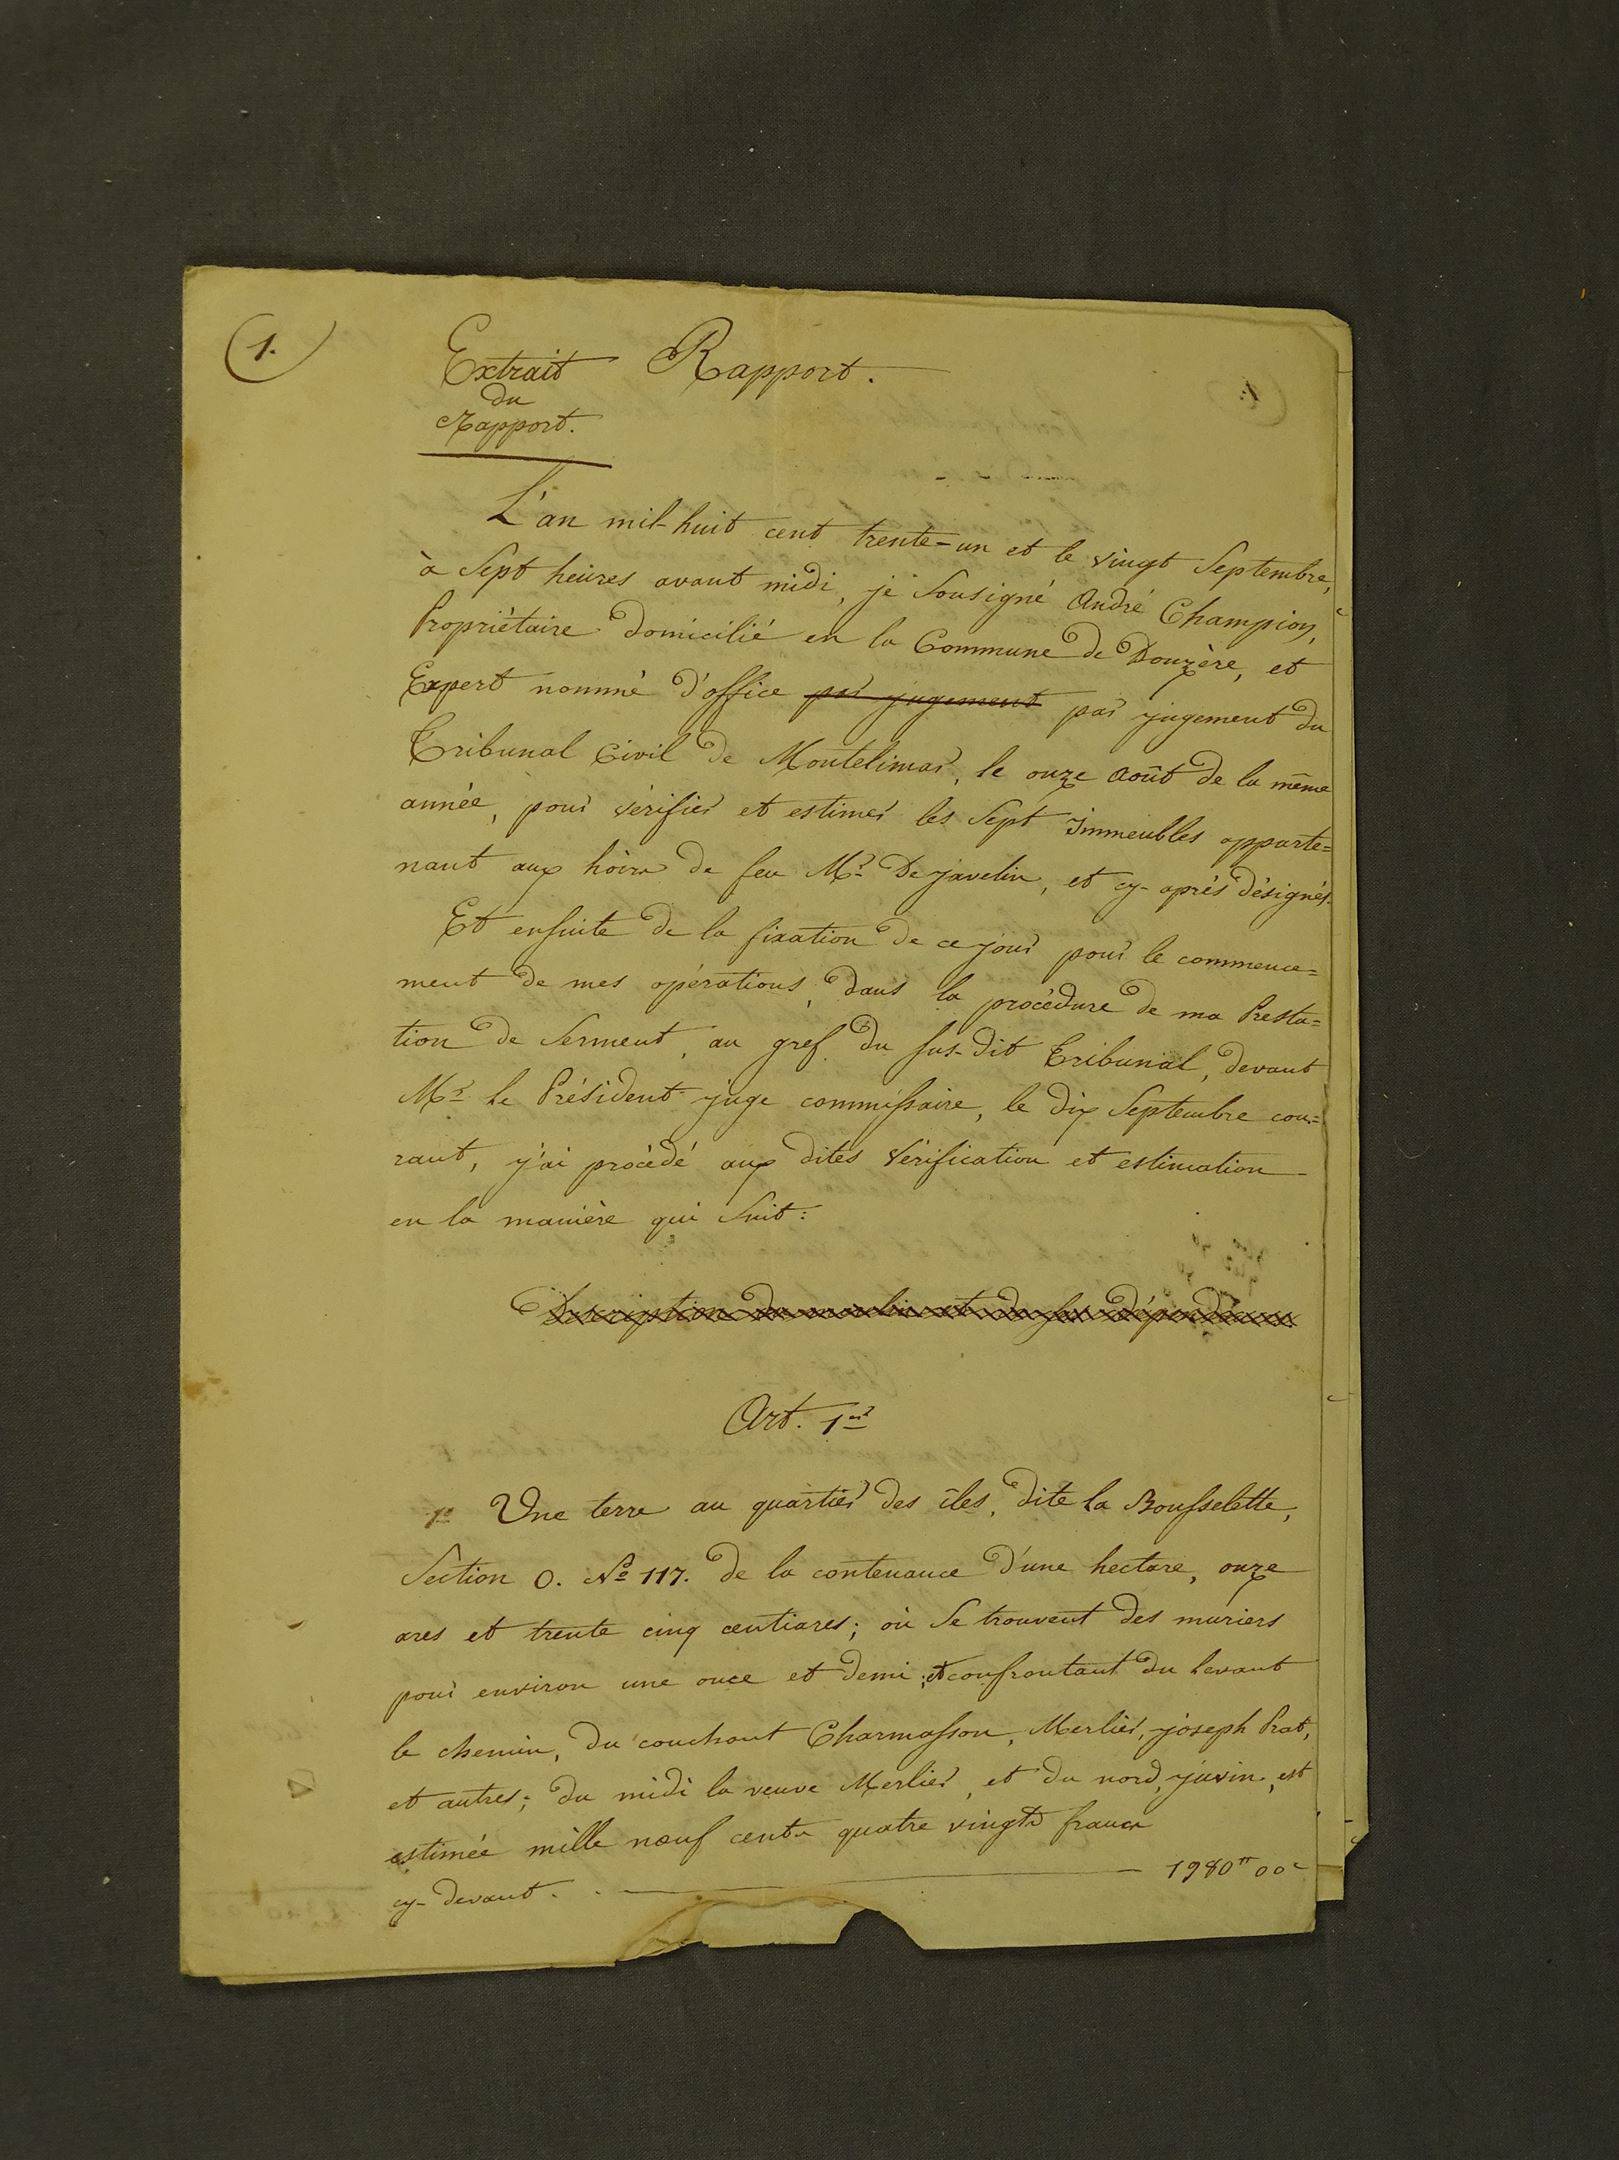 (1.)
Extrait
du
Rapport.
Rapport.
L'an mil-huit cent trente-un et le vingt Septembre,
à Sept heures avant midi, je Sousigné André Champion,
Propriétaire domicilié en la Commune de Donzère, et
Expert nommé d'office par jugement par jugement du
Tribunal Civil de Montélimar, le onze Août de la même
année, pour vérifier et estimer les Sept Immeubles apparte=
nant aux hoirs de feu Mr Dejavelin, et cy-après désignés.
Et ensuite de la fixation de ce jour pour le commence=
ment de mes opérations, dans la procédure de ma Presta=
tion de Serment, au gref du sus-dit Tribunal, devant
Mr le Président juge commissaire, le dix Septembre cou=
rant, j'ai procédé aux dites Vérification et estimation
en la manière qui Suit:
Description du moulin et de ses dépendances
Art. 1er
1o Une terre au quartier des îles, dite la Bousselette,
Section O. No 117. de la contenance d'une hectare, onze
ares et trente cinq centiares; où Se trouvent des muriers
pour environ une once et demi; et confrontant du levant
le chemin, du couchant Charmasson, Merlier, joseph Prat,
et autres; du midi la veuve Merlier, et du nord, juvin, est
estimée mille nœuf cents quatre vingts francs
cy-devant. . 1980" 00c